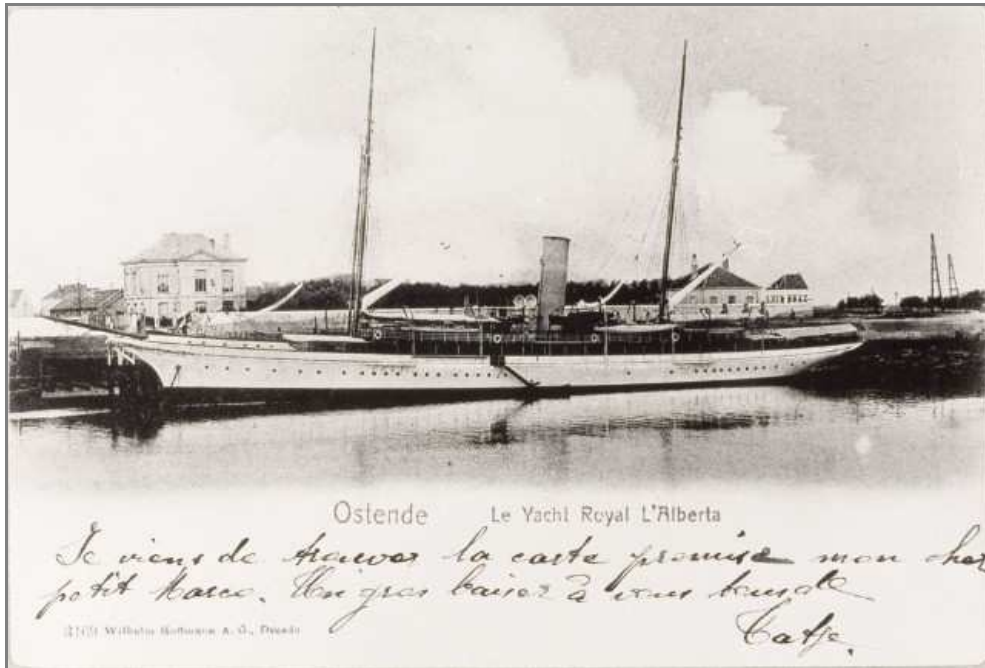 Ostende Le Yacht Royal L'Alberta
Je viens de trouver la carte promise mon cher
petit Marce. Un gros baiser à vous tous de
3169 Wilhelm Hoffmann A. G., Dresde